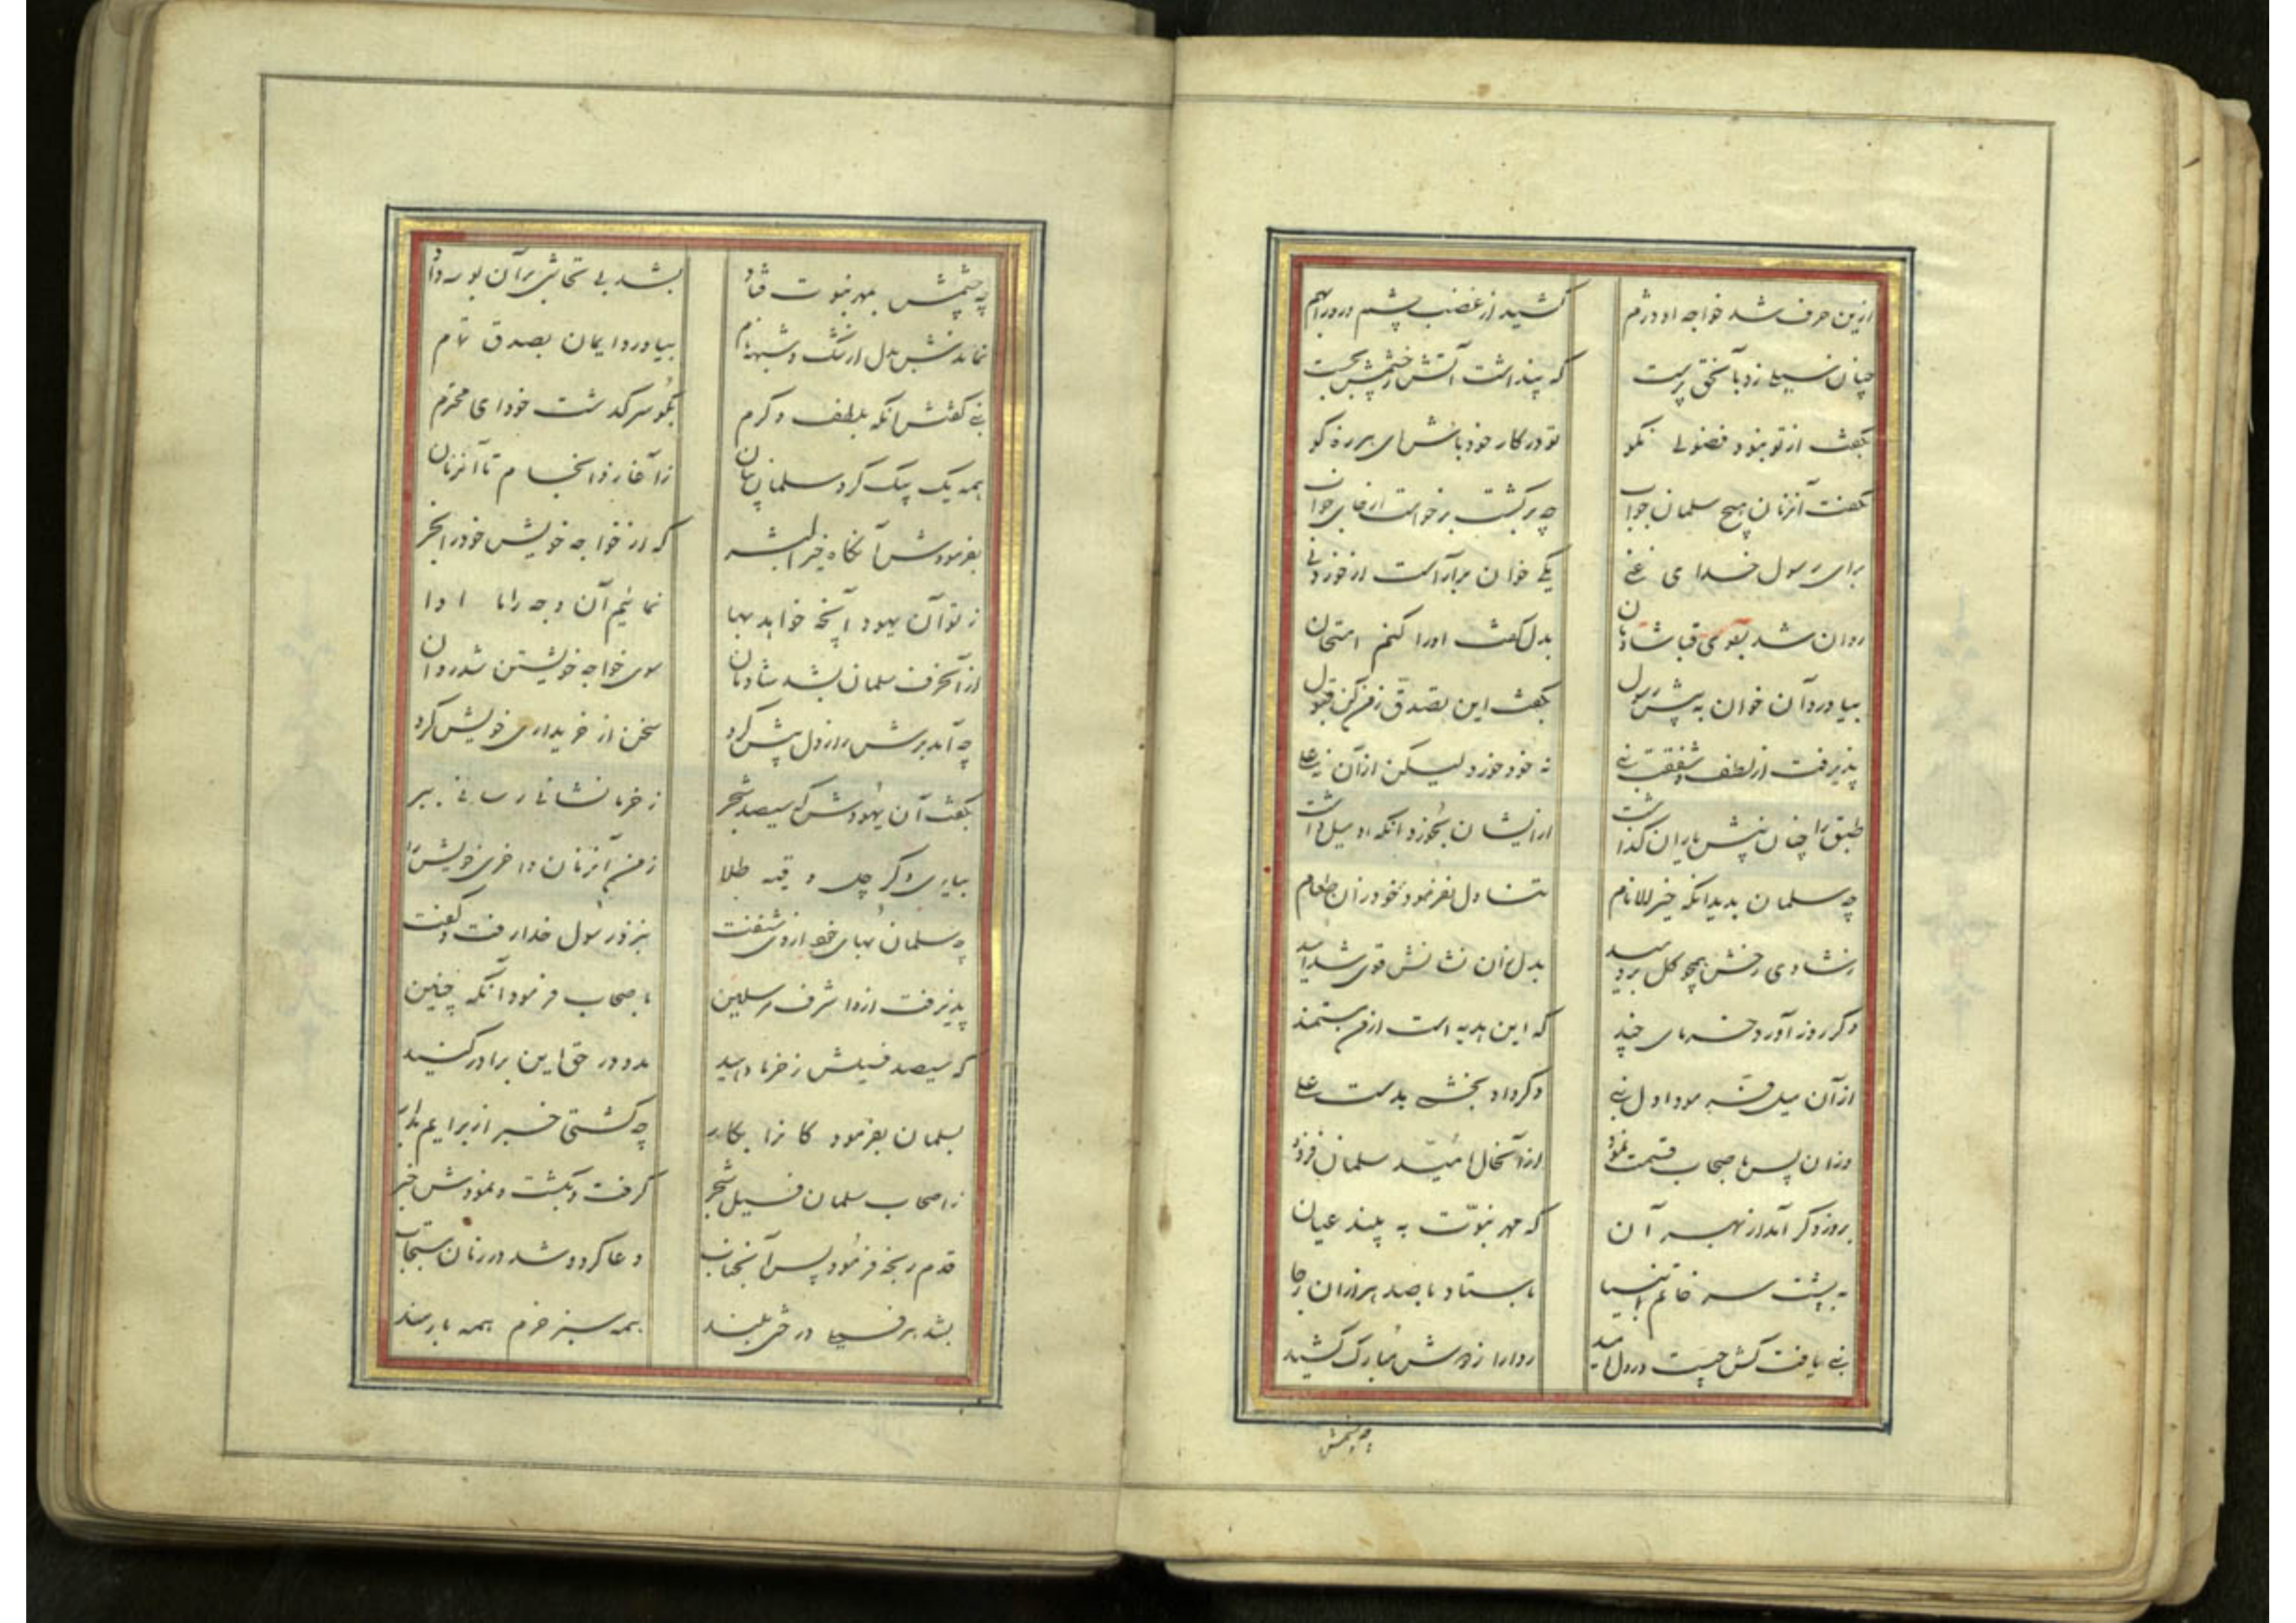 ازین حرف شد خواجه او دژم کشید از غضب چشم و رو را بهم
چنان سیلی زد با سختی پرست که پنداشت آتش ز چشمش بجست
بگفت از تو نبود فضولی نکو تو در کار خود باش ای هرزه گو
نگفت آنزمان هیچ سلمان جواب چه برگشت برخواست از جای خواب
برای رسول خدای غنی یکی خوان برآراست از خوردنی
روان شد بسوی قبا شادمان بدل گفت او را کنم امتحان
بیاورد آن خوان به پیش رسول بگفت این تصدق ز من کن قبول
پذیرفت از لطف و شفقت نبی نه خود خورد لیکن از آن نی علی
طبق را چنان پیش یاران گذاشت از ایشان بخورد آنکه او میل داشت
چه سلمان بدید آنکه خیر الانام تناول نفرمود خود زان طعام
ز شادی رخش همچو گل بردمید بدل زان نشانش قوی شد امید
دگر روز آورد خرمای چند که این هدیه است از من مستمند
از آن میل فرمود اول نبی دگر داد بخشی بدست علی
وزان پس باصحاب قسمت نمود از آنحال امید سلمان فزود
بروز دگر آمد از بهر آن که مهر نبوت به بیند عیان
به پشت سر خاتم انبیا باستاد با صد هزاران رجا
نبی یافت کش چیست در دل امید ردا را ز دوش مبارک کشید
چه چشمش
چه چشمش بمهر نبوت فتاد بشد بی تحاشی بر آن بوسه داد
نماندش بدل از شک و شبهه نام بیاورد ایمان بصدق تمام
نبی گفتش آنگه بلطف و کرم بگو سرگذشت خود ای محترم
همه یک بیک کرد سلمان بیان ز آغاز و انجام تا آنزمان
بفرمودش آنگاه خیر البشر که از خواجه خویش خود را بخر
ز تو آن یهود آنچه خواهد بها نمائیم آن وجه را ما ادا
از آنحرف سلمان بشد شادمان سوی خواجه خویشتن شد روان
چه آمد برش راز دل پیش کرد سخن از خریداری خویش کرد
بگفت آن یهودش که سیصد شجر ز خرما نشانی رسانی ببر
بیاری دگر چل وقیه طلا ز من آنزمان واخری خویش را
چه سلمان بهای خود از وی شنفت بنزد رسول خدا رفت و گفت
پذیرفت ازو اشرف مرسلین باصحاب فرمود آنگه چنین
که سیصد فسیلش ز خرما دهید مدد در حق این برادر کنید
بسلمان بفرمود کانرا بکار چه کشتی خبر از برایم بیار
ز اصحاب سلمان فسیل شجر گرفت و بکشت و نمودش خبر
قدم رنجه فرمود پس آنجناب دعا کرد و شد در زمان مستجاب
بشد هر فسیلی درختی بلند همه سبز خرم همه بارمند